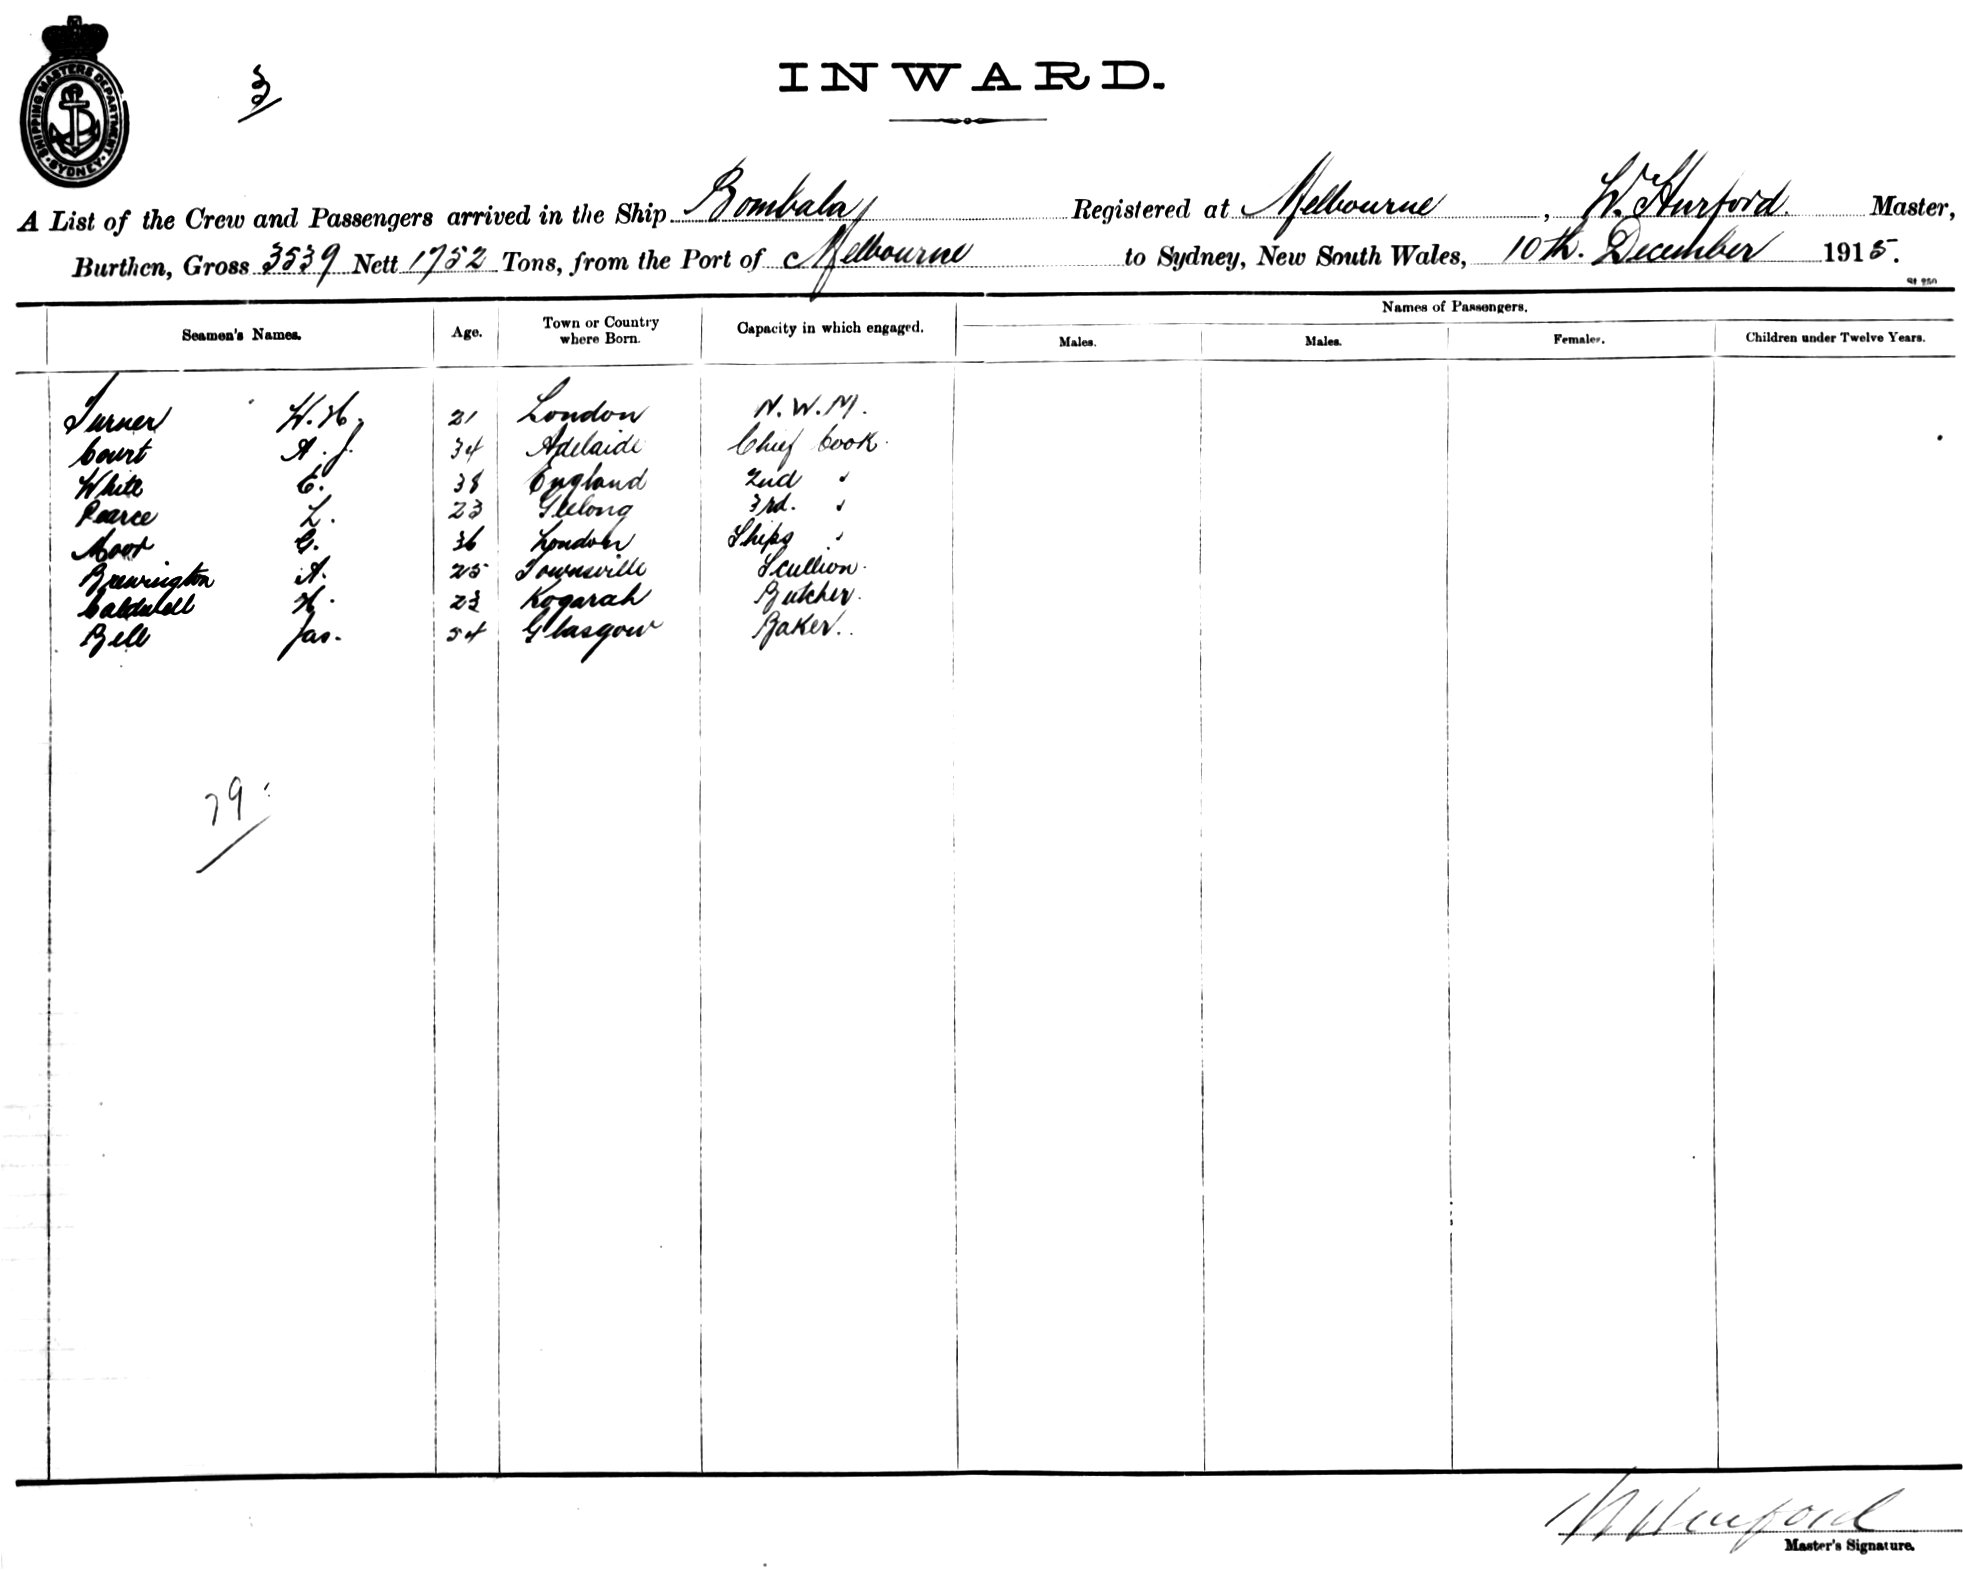 SHIPPING MASTERS DEPARTMENT · SYDNEY ·
3
INWARD.
A List of the Crew and Passengers arrived in the Ship Bombala Registered at Melbourne, W. Hurford. Master,
Burthen, Gross 3539 Nett 1752 Tons, from the Port of Melbourne to Sydney, New South Wales, 10th. December 1915.
Seamen's Names. Age. Town or Country where Born. Capacity in which engaged. Names of Passengers.
Males. Males. Females. Children under Twelve Years.
Turner W. H. 21 London N.W.M.
Court A. J. 34 Adelaide Chief Cook.
White E. 38 England 2nd "
Pearce L. 23 Geelong 3rd. "
Moor G. 36 London Ships "
Brewington A. 25 Townsville Scullion.
Caldwell H. 23 Kogarah Butcher.
Bell Jas. 54 Glasgow Baker.
79
W Hurford
Master's Signature.